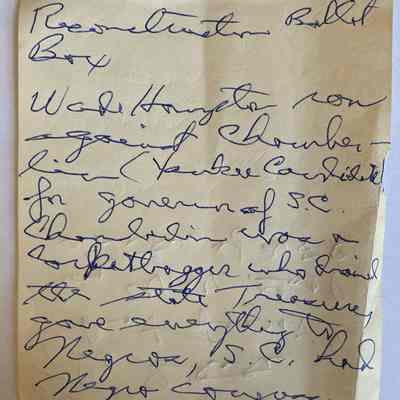 Reconstruction Ballot
Box
Wade Hampton ran
against Chamber-
lain (Yankee Candidate)
for governor of S.C.
Chamberlain was a
carpetbagger who drained
the state Treasury,
gave everything to
Negros, S.C. had
Negro